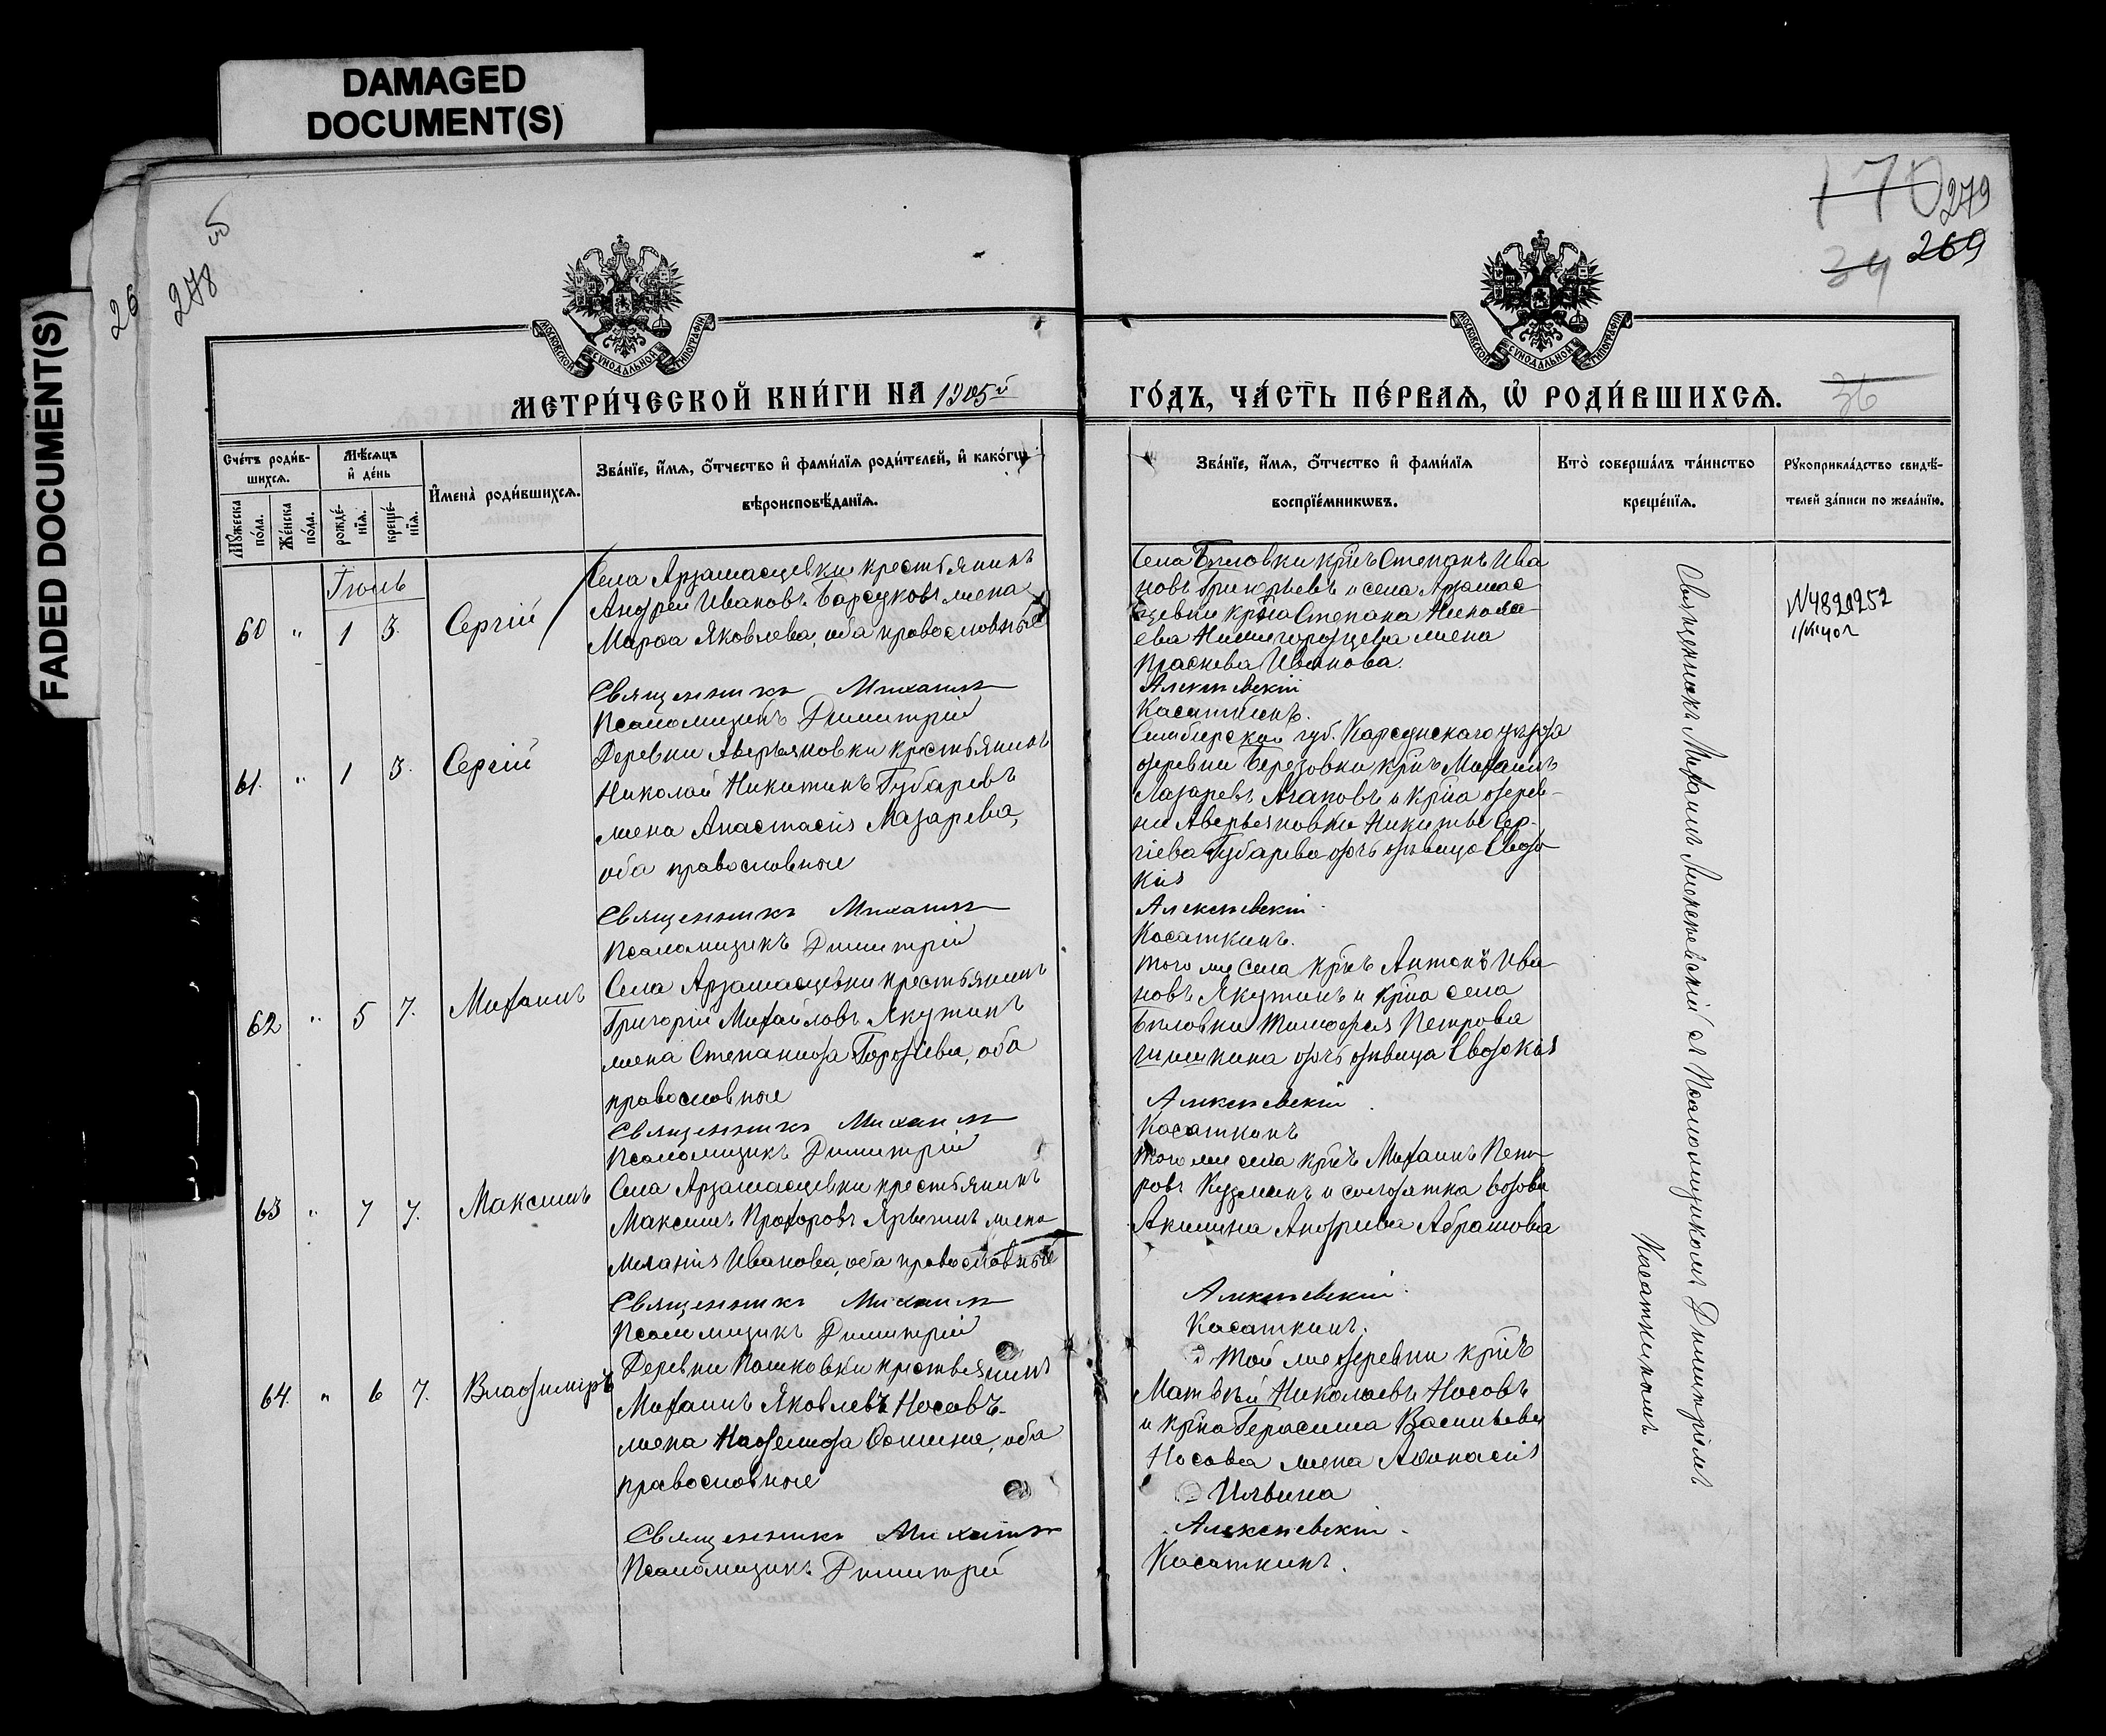 DAMAGED
DOCUMENT(S)
FADED DOCUMENT(S)
26
278 об
170 279
34 269
36
МОСКОВСКОЙ СѴНОДАЛЬНОЙ ТИПОГРАФІИ
МОСКОВСКОЙ СѴНОДАЛЬНОЙ ТИПОГРАФІИ
МЕТРИ́ЧЕСКОЙ КНИ́ГИ НА 1905й
ГО́ДЪ, ЧА́СТЬ ПЕ́РВАѦ, Ѡ҆ РОДИ́ВШИХСѦ.
Сче́тъ роди́в-
шихсѧ.
Мѣ́сѧцъ
и҆ де́нь
Мꙋ́жеска
по́ла.
Же́нска
по́ла.
рожде́-
нїѧ.
креще́-
нїѧ.
И҆мена̀ роди́вшихсѧ.
Зва́нїе, и҆́мѧ, ѻ҆́тчество и҆ фами́лїѧ роди́телей, и҆ како́гѡ
вѣроисповѣ́данїѧ.
Зва́нїе, и҆́мѧ, ѻ҆́тчество и҆ фами́лїѧ
воспрїе́мникѡвъ.
Кто̀ соверша́лъ та́инство
креще́нїѧ.
Рꙋкоприкла́дство свидѣ́-
телей за́писи по жела́нїю.
Іюль
60 " 1 3. Сергій
Села Арзамасцевки крестьянинъ
Андрей Ивановъ Барсуковъ жена
Марѳа Яковлева, оба православные
Священникъ Михаилъ
Псаломщикъ Димитрій
Села Бѣловки кр̃нъ Степанъ Ива
новъ Григорьевъ и села Арзамас
цевки кр̃на Степана Никола
ева Нижегородцева жена
Праскева Иванова.
Алексѣевскій
Касаткинъ.
61. " 1 3. Сергій
Деревни Аверьяновки крестьянинъ
Николай Никитинъ Губаревъ
жена Анастасія Лазарева,
оба православные
Священникъ Михаилъ
Псаломщикъ Димитрій
Симбирской губ. Карсунскаго уѣзда
деревни Березовки кр̃нъ Михаилъ
Лазаревъ Агаповъ и кр̃на дерев-
ни Аверьяновки Никиты Сер-
гіева Губарева дочь дѣвица Евдо
кія
Алексѣевскій
Касаткинъ.
62 " 5 7. Михаилъ
Села Арзамасцевки крестьянинъ
Григорій Михайловъ Якутинъ
жена Степанида Гордѣева, оба
православные
Священникъ Михаилъ
Псаломщикъ Димитрій
того же села кр̃нъ Антонъ Ива
новъ Якутинъ и кр̃на села
Бѣловки Тимоѳея Петрова
Шишкина дочь дѣвица Евдокія
Алексѣевскій
Касаткинъ
63 " 7 7. Максимъ
Села Арзамасцевки крестьянинъ
Максимъ Прохоровъ Ярыгинъ жена
Меланія Иванова, оба православные
Священникъ Михаилъ
Псаломщикъ Димитрій
того же села кр̃нъ Михаилъ Пет-
ровъ Кузминъ и солдатка вдова
Акилина Андреева Абрамова
Алексѣевскій
Касаткинъ.
64. " 6 7. Владимиръ
Деревни Пашковки крестьянинъ
Михаилъ Яковлевъ Носовъ
жена Надежда Ѳомина, оба
православные
Священникъ Михаилъ
Псаломщикъ Димитрій
Той же деревни кр̃нъ
Матвѣй Николаевъ Носовъ
и кр̃на Герасима Васильева
Носова жена Аѳанасія
Ильина
Алексѣевскій
Касаткинъ.
Священникъ Михаилъ Алексѣевскій съ Псаломщикомъ Димитріемъ
Касаткинымъ
N4820252